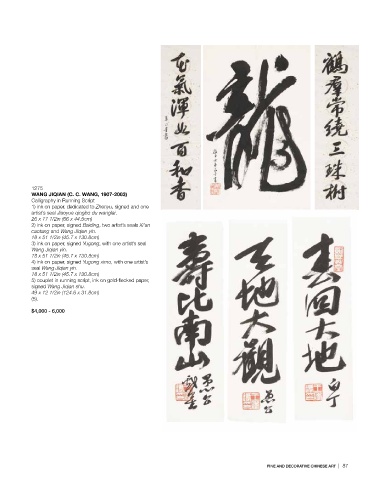 1275
WANG JIQIAN (C. C. WANG, 1907-2003)
Calligraphy in Running Script
1) ink on paper, dedicated to Zhenyu, signed and one
artist's seal
26 x 17 1/2in (66 x 44.5cm)
2) ink on paper, signed Baiding, two artist's seals Xi'an
caotang and Wang Jiqian yin.
18 x 51 1/2in (45.7 x 130.8cm)
3) ink on paper, signed Yugong, with one artist's seal
Wang Jiqian yin.
18 x 51 1/2in (45.7 x 130.8cm)
4) ink on paper, signed Yugong xino, with one artist's
seal Wang Jiqian yin.
18 x 51 1/2in (45.7 x 130.8cm)
5) couplet in running script, ink on gold-flecked paper,
signed Wang Jiqian shu.
49 x 12 1/2in (124.5 x 31.8cm)
(5).
$4,000 - 6,000
鶴羣常繞三珠樹
龍
花氣渾如百和香
春回大地
白丁
天地大觀
愚公
壽比南山
愚公
FINE AND DECORATIVE CHINESE ART | 81